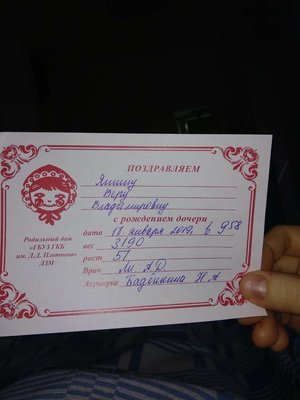 ПОЗДРАВЛЯЕМ
Яшину
Веру
Владимировну
с рождением дочери
дата 18 января 2019, в 958
вес 3190
рост 51
Врач Ли АР
Акушерка Баденкина Н А
Родильный дом
«ГБУЗ ГКБ
им. Д.Д. Плетнева»
ДЗМ